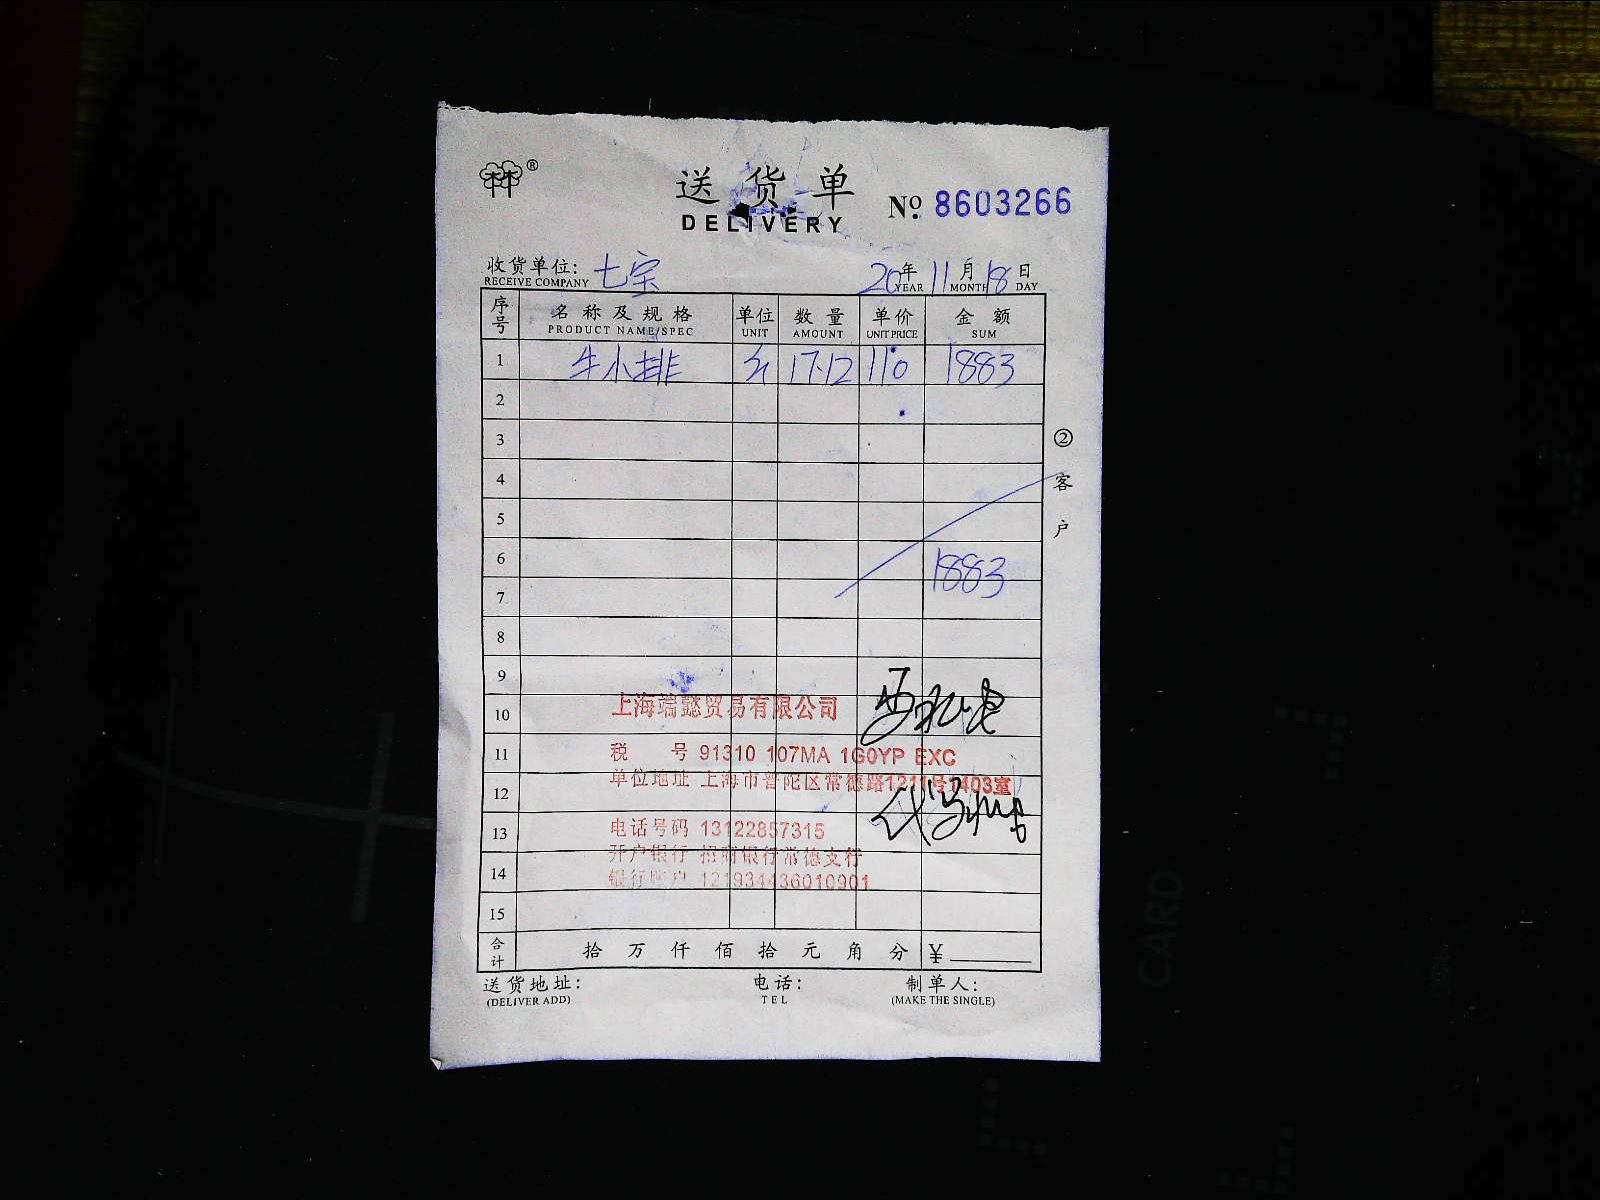 林®
送货单
DELIVERY
№ 8603266
收货单位: 七宗
RECEIVE COMPANY
20年 11月 18日
YEAR MONTH DAY
序号 名称及规格 单位 数量 单价 金额
PRODUCT NAME/SPEC UNIT AMOUNT UNIT PRICE SUM
1 牛小排 17.12 110 1883
2
3
4
5
6 1883
7
8
9
10
11
12
13
14
15
上海端懿贸易有限公司
税 号 91310 107MA 1G0YP EXC
单位地址 上海市普陀区常德路1211号1403室
电话号码 13122857315
开户银行 招商银行常德支行
银行账户 121934436010901
合计 拾 万 仟 佰 拾 元 角 分 ¥
送货地址: 电话: 制单人:
(DELIVER ADD) TEL (MAKE THE SINGLE)
②客户
CARD